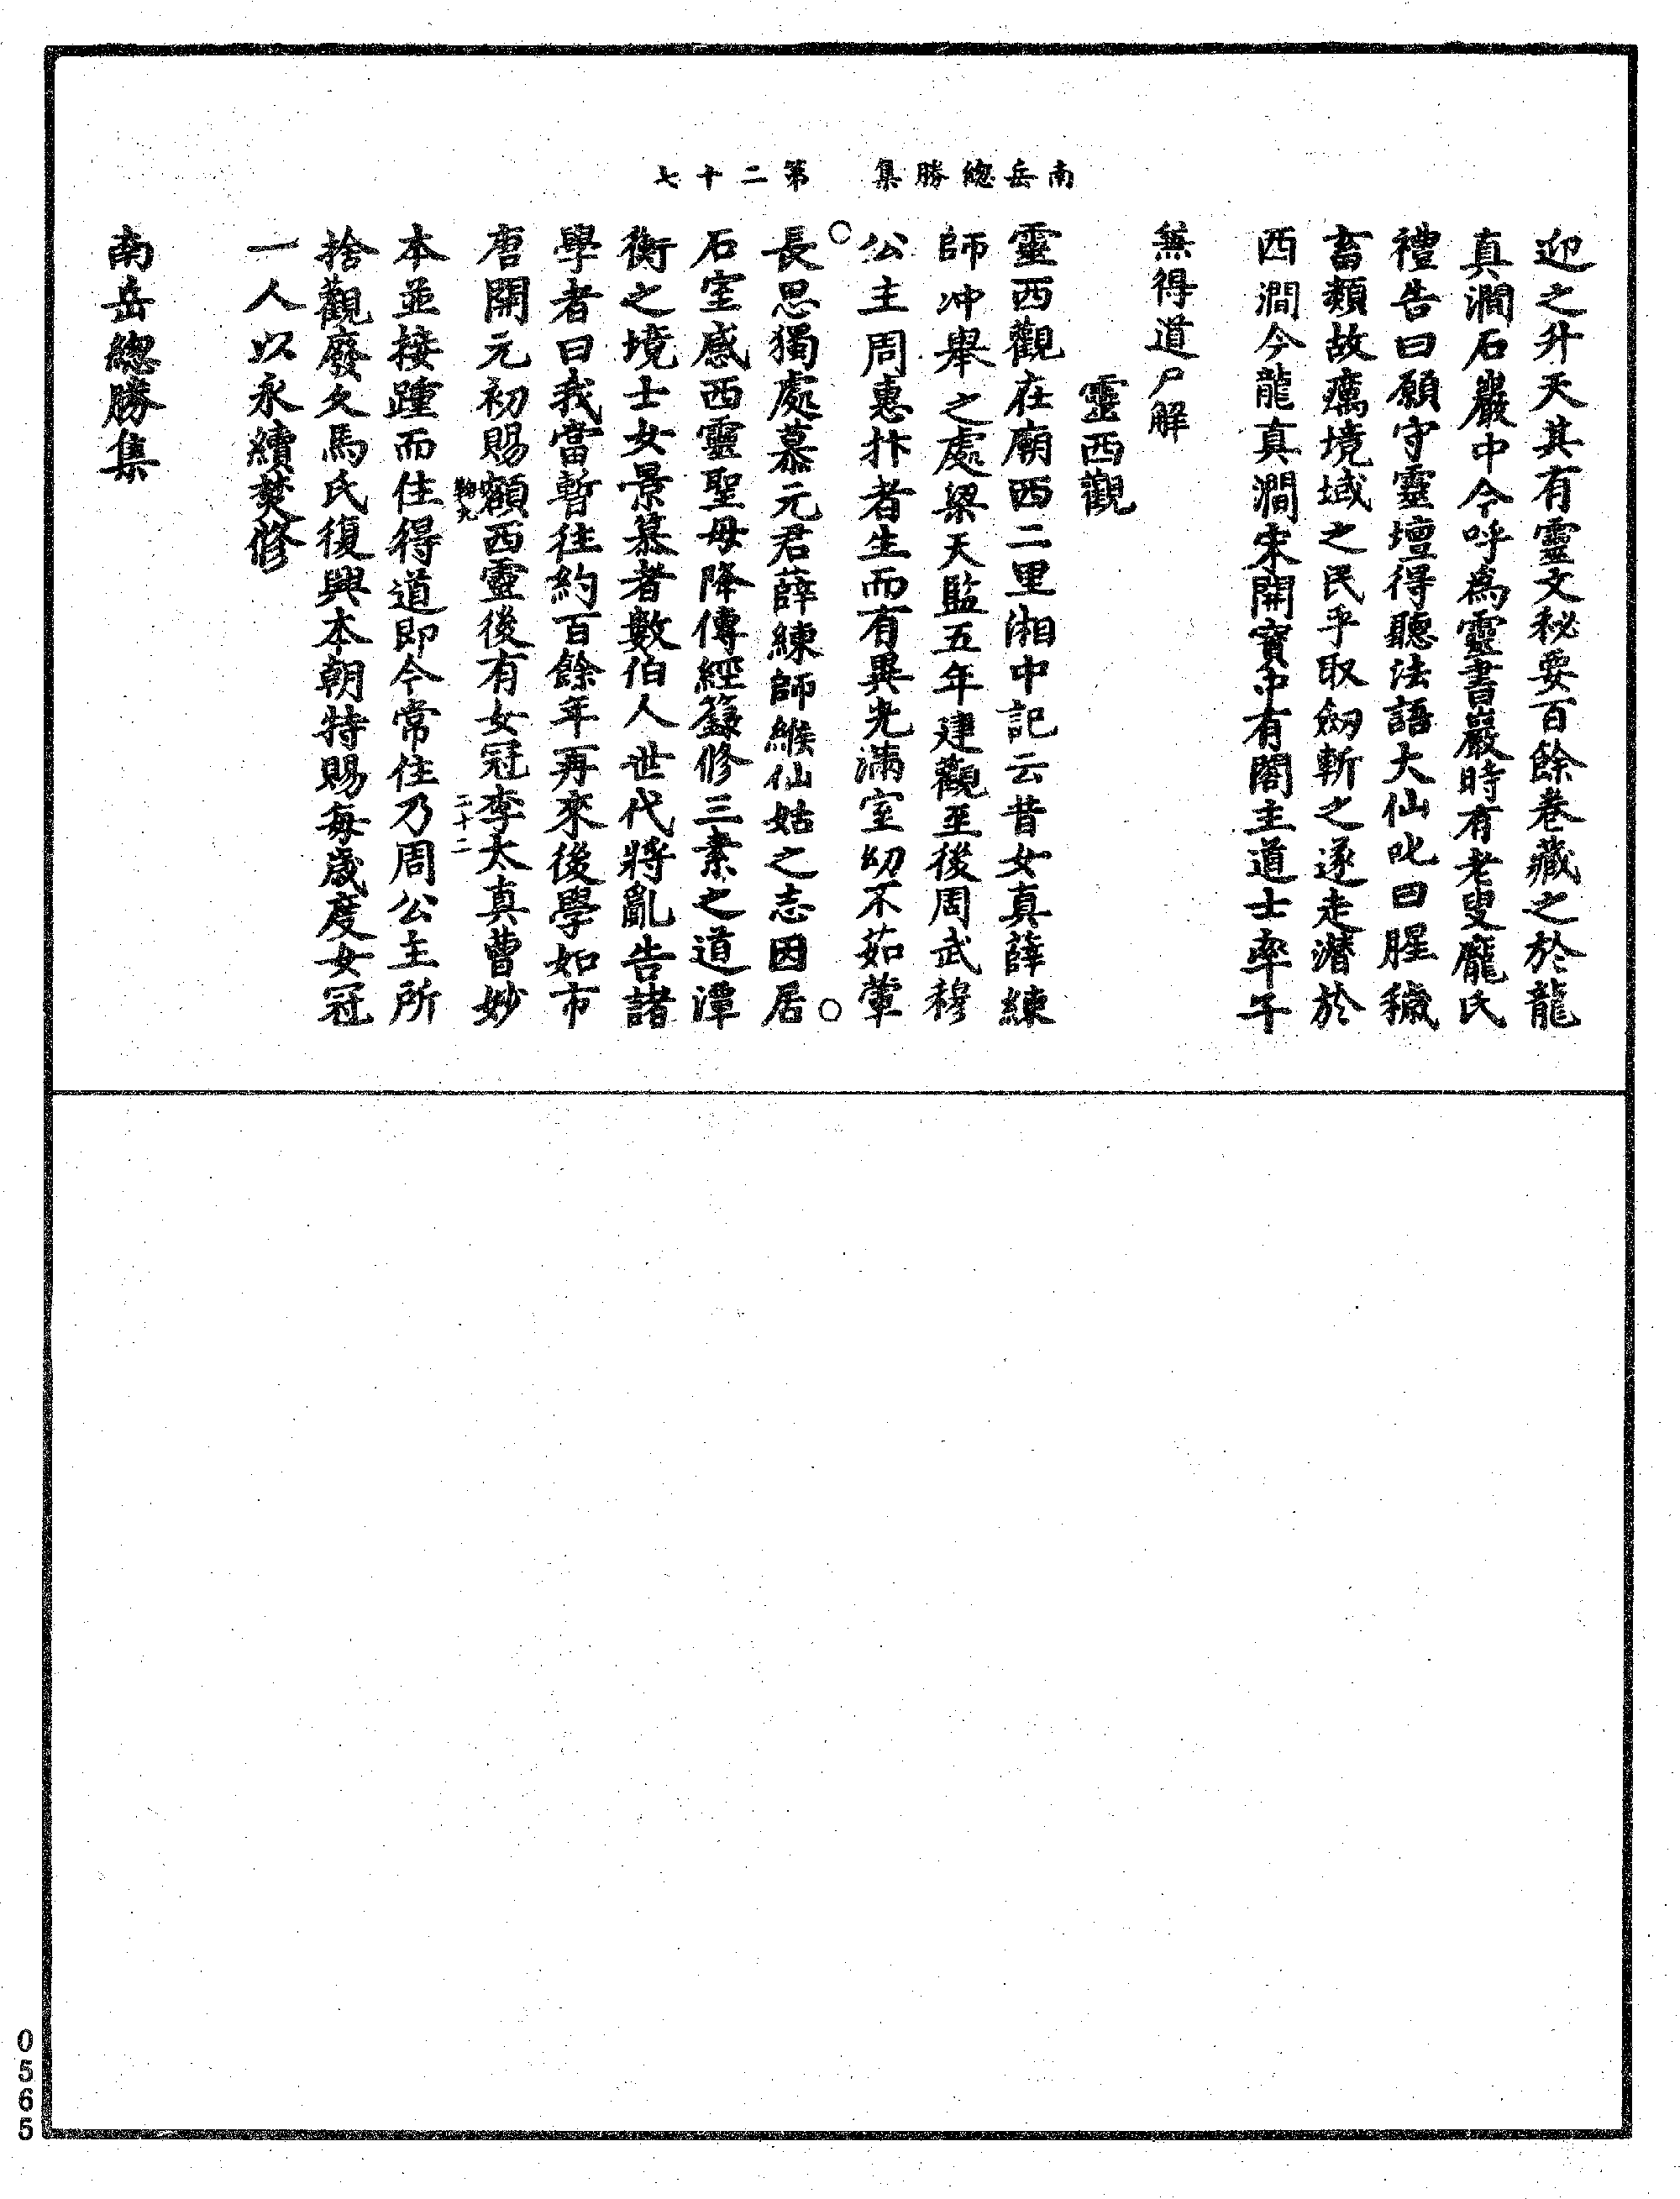 南岳總勝集　第二十七
迎之升天其有靈文秘要百餘卷藏之於龍
真澗石巖中今呼為靈書巖時有老叟龐氏
禮告曰願守靈壇得聽法語大仙叱曰腥穢
畜類故癘境域之民乎取劒斬之遂走潛於
西澗今龍真澗宋開寶中有閣主道士率子
無得道尸解
靈西觀
靈西觀在廟西二里湘中記云昔女真薛練
師冲舉之處梁天監五年建觀至後周武穆
公主周惠抃者生而有異光滿室幼不茹葷
長思獨處慕元君薛練師緱仙姑之志因居
石室感西靈聖母降傳經籙修三素之道潭
衡之境士女景慕者數伯人世代將亂告諸
學者曰我當暫往約百餘年再來後學如市
唐開元初賜額西靈後有女冠李太真曹妙
鞠九　二十二
本並接踵而住得道即今常住乃周公主所
捨觀廢久馬氏復興本朝特賜每歲度女冠
一人以永續焚修
南岳總勝集
0565